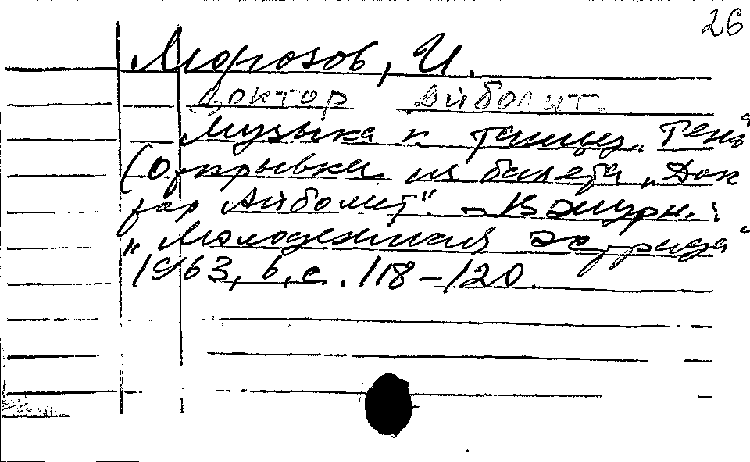 26
Морозов, И.
Доктор Айболит.
Музыка к танцу „Тень"
(Отрывки из балета „Док
тор Айболит". – В журн.:
„Молодежная эстрада"
1963, 6, с. 118–120.